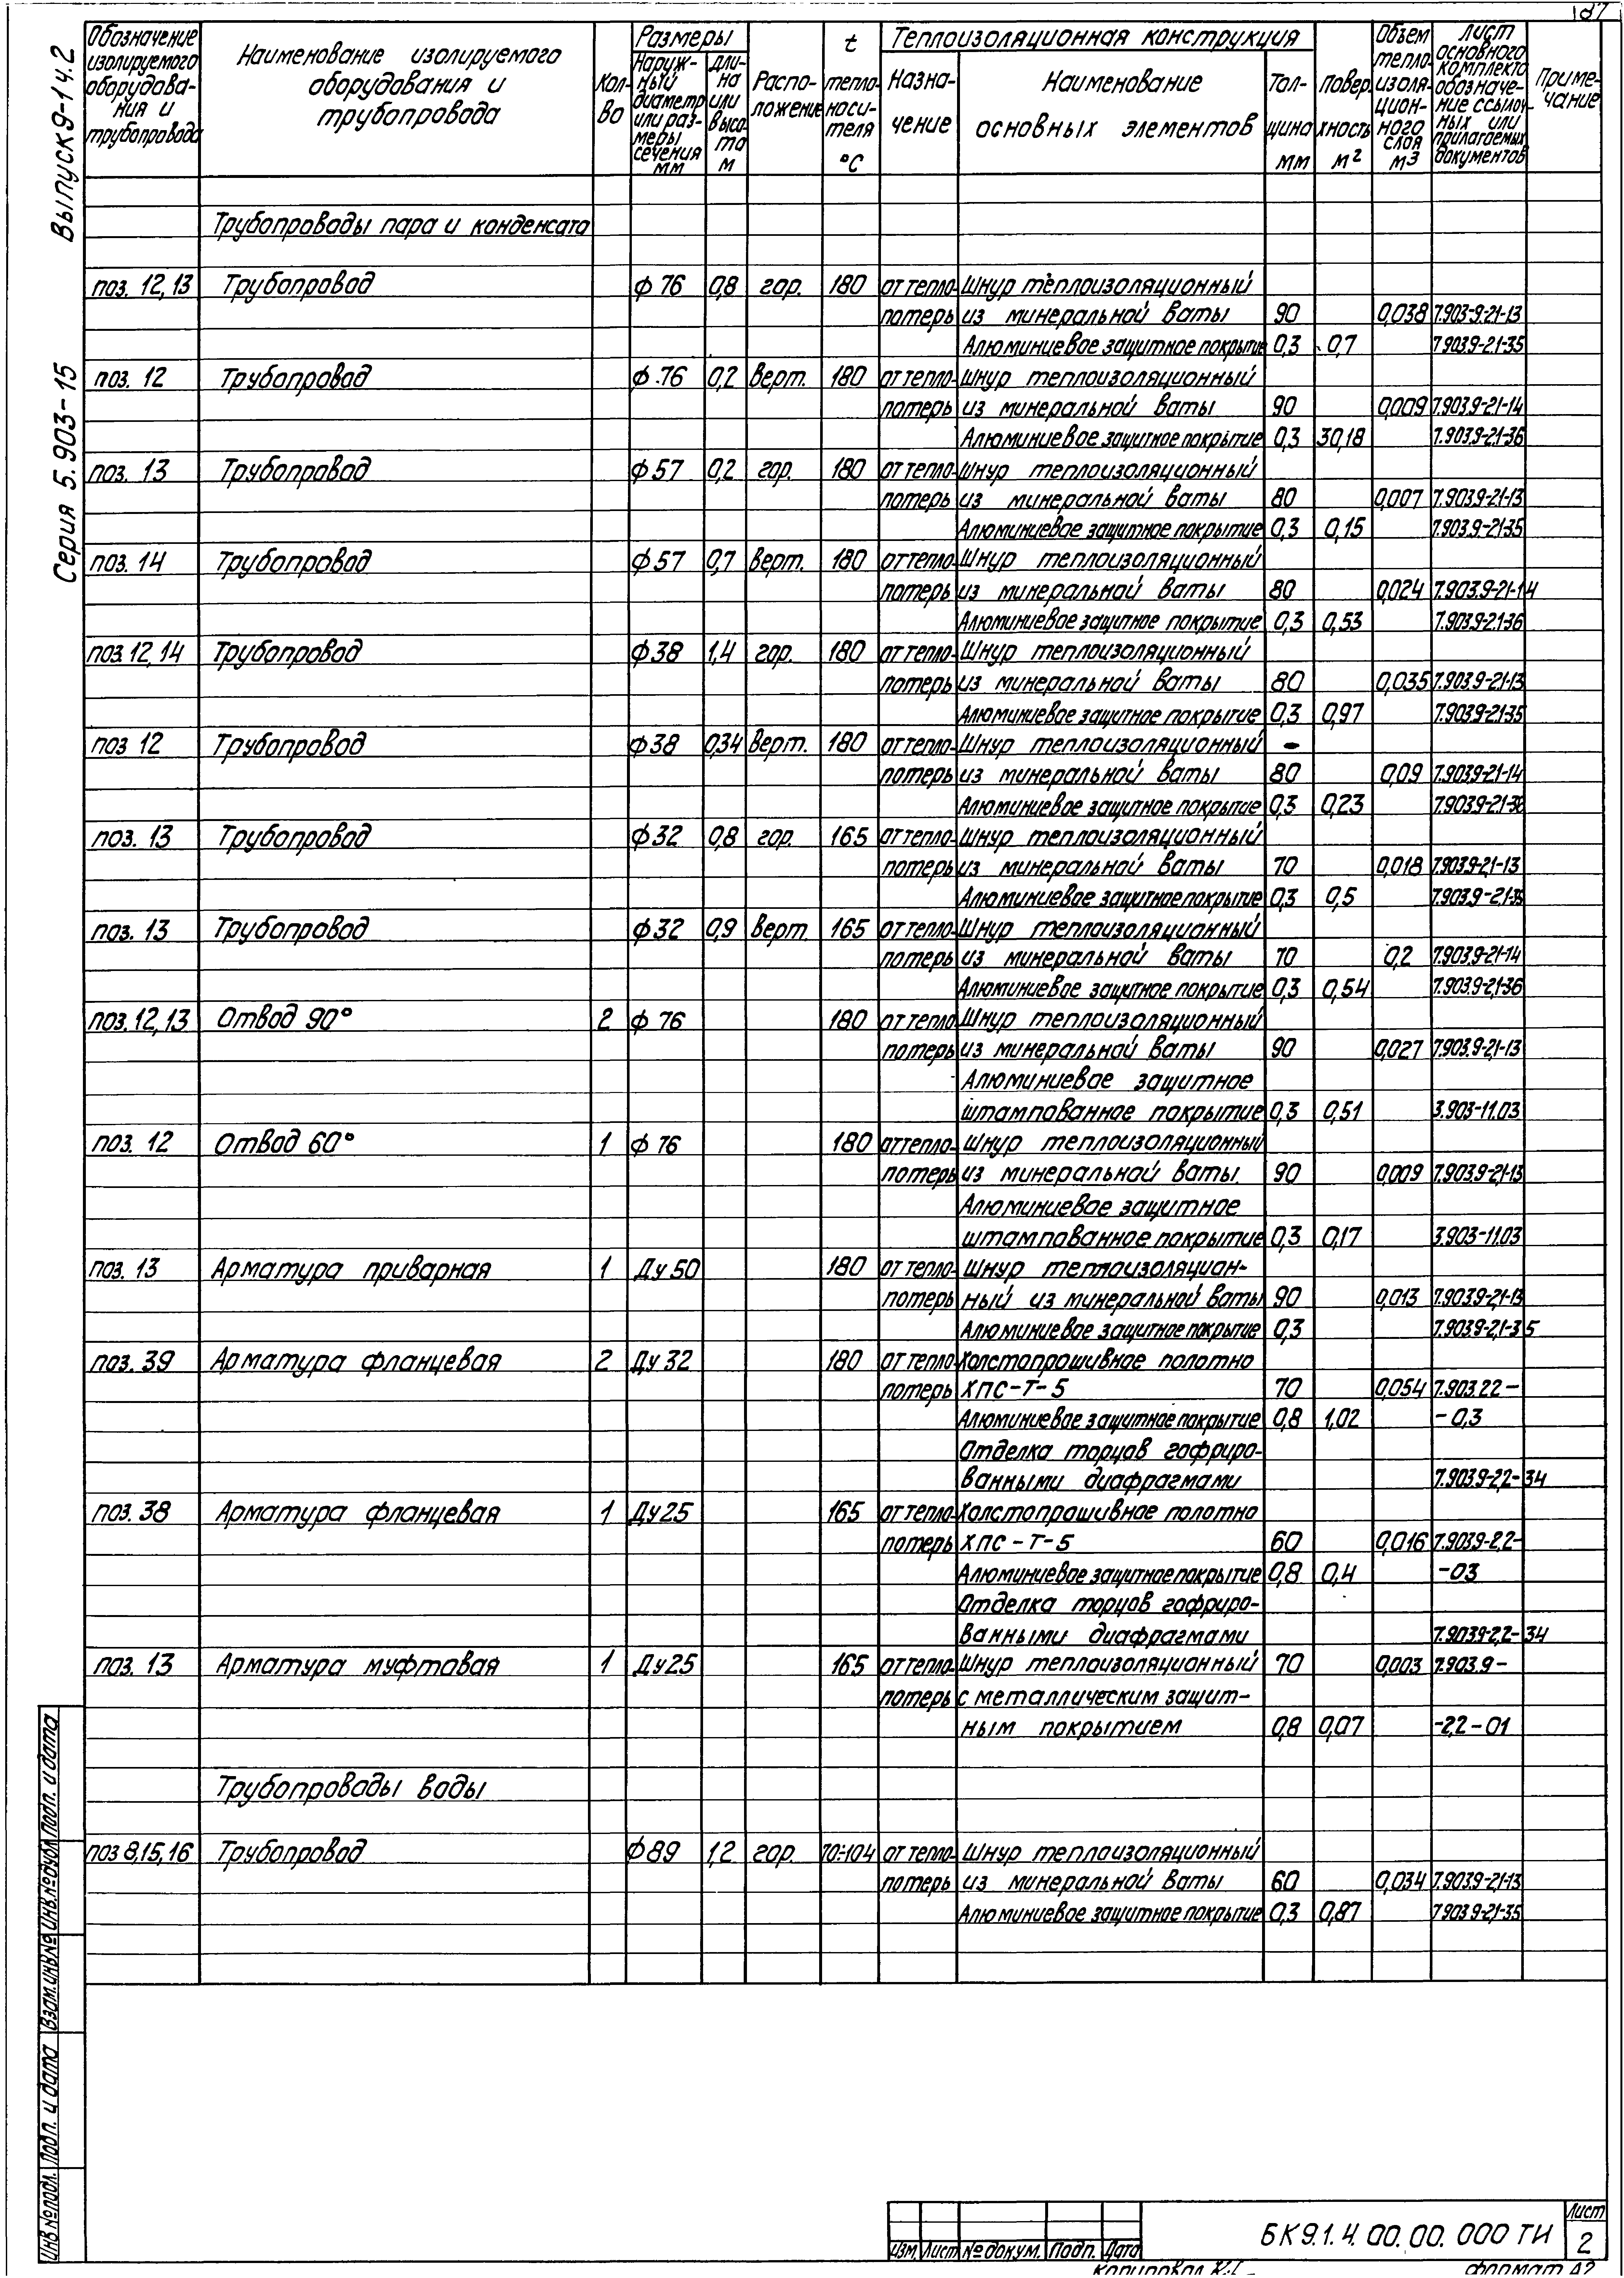 187
Выпуск 9-1 ч.2
Серия 5.903-15
Обозначение изолируемого оборудования и трубопровода
Наименование изолируемого оборудования и трубопровода
Кол-во
Размеры
Наружный диаметр или размеры сечения мм
длина или высота м
Расположение
t теплоносителя °С
Теплоизоляционная конструкция
Назначение
Наименование основных элементов
Толщина мм
Поверхность м²
Объем теплоизоляционного слоя м3
Лист основного комплекта обозначение ссылочных или прилагаемых документов
Примечание
Трубопроводы пара и конденсата
поз. 12,13 Трубопровод ф 76 0,8 гор. 180 от тепло- Шнур теплоизоляционный
потерь из минеральной ваты 90 0,038 7.903-9-2,1-13
Алюминиевое защитное покрытие 0,3 0,7 7.903.9-2.1-35
поз. 12 Трубопровод ф 76 0,2 Верт. 180 от тепло- Шнур теплоизоляционный
потерь из минеральной ваты 90 0,009 7.903.9-2,1-14
Алюминиевое защитное покрытие 0,3 30,18 7.903.9-2.1-36
поз. 13 Трубопровод ф 57 0,2 гор. 180 от тепло- Шнур теплоизоляционный
потерь из минеральной ваты 80 0,007 7.903.9-2,1-13
Алюминиевое защитное покрытие 0,3 0,15 7.903.9-2,1-35
поз. 14 Трубопровод ф 57 0,7 Верт. 180 от тепло- Шнур теплоизоляционный
потерь из минеральной ваты 80 0,024 7.903.9-2,1-14
Алюминиевое защитное покрытие 0,3 0,53 7.903.9-2.1-36
поз. 12,14 Трубопровод ф 38 1,4 гор. 180 от тепло- Шнур теплоизоляционный
потерь из минеральной ваты 80 0,035 7.903.9-2,1-13
Алюминиевое защитное покрытие 0,3 0,97 7.903.9-2.1-35
поз 12 Трубопровод ф 38 0,34 Верт. 180 от тепло- Шнур теплоизоляционный -
потерь из минеральной ваты 80 0,09 7.903.9-2,1-14
Алюминиевое защитное покрытие 0,3 0,23 7.903.9-2,1-36
поз. 13 Трубопровод ф 32 0,8 гор. 165 от тепло- Шнур теплоизоляционный
потерь из минеральной ваты 70 0,018 7.903.9-2,1-13
Алюминиевое защитное покрытие 0,3 0,5 7.903.9-2.1-35
поз. 13 Трубопровод ф 32 0,9 Верт. 165 от тепло- Шнур теплоизоляционный
потерь из минеральной ваты 70 0,2 7.903.9-2,1-14
Алюминиевое защитное покрытие 0,3 0,54 7.903.9-2,1-36
поз. 12,13 Отвод 90° 2 ф 76 180 от тепло Шнур теплоизоляционный
потерь из минеральной ваты 90 0,027 7.903.9-2,1-13
Алюминиевое защитное
штампованное покрытие 0,3 0,51 3.903-11.03
поз. 12 Отвод 60° 1 ф 76 180 от тепло- Шнур теплоизоляционный
потерь из минеральной ваты 90 0,009 7.903.9-2,1-13
Алюминиевое защитное
штампованное покрытие 0,3 0,17 3.903-11.03
поз. 13 Арматура приварная 1 Ду 50 180 от тепло- Шнур теплоизоляцион-
потерь ный из минеральной ваты 90 0,013 7.903.9-2,1-13
Алюминиевое защитное покрытие 0,3 7.903.9-2,1-35
поз. 39 Арматура фланцевая 2 Ду 32 180 от тепло- Холстопрошивное полотно
потерь ХПС-Т-5 70 0,054 7.903.22-
Алюминиевое защитное покрытие 0,8 1,02 -0,3
Отделка торцов гофриро-
ванными диафрагмами 7.903.9-2,2-34
поз. 38 Арматура фланцевая 1 Ду 25 165 от тепло- Холстопрошивное полотно
потерь ХПС-Т-5 60 0,016 7.903.9-2,2-
Алюминиевое защитное покрытие 0,8 0,4 -03
Отделка торцов гофриро-
ванными диафрагмами 7.903.9-2,2-34
поз. 13 Арматура муфтовая 1 Ду 25 165 от тепло- Шнур теплоизоляционный 70 0,003 7.903.9-
потерь с металлическим защит-
ным покрытием 0,8 0,07 -2,2-01
Трубопроводы воды
поз 8,15,16 Трубопровод ф 89 1,2 гор. 70÷104 от тепло- Шнур теплоизоляционный
потерь из минеральной ваты 60 0,034 7.903.9-2,1-13
Алюминиевое защитное покрытие 0,3 0,87 7.903.9-2,1-35
Инв № подл. Подп. и дата Взам. инв № Инв. № дубл. Подп. и дата
Изм. Лист № докум. Подп. Дата
БК 9.1.4.00.00.000 ТИ
Лист
2
Копировал
Формат А2